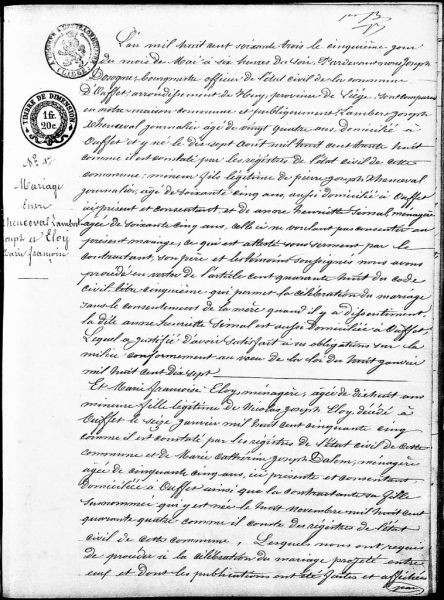 L'an mil huit cent soixante trois le cinquième jour
du mois de Mai à six heures du soir, Pardevant nous Joseph
bourgmestre officier de l'état civil de la commune
d'Ouffet arrondissement de Huy, province de Liège, sont comparus
en notre maison commune et publiquement Lambert Joseph
Thenceval journalier âgé de vingt quatre ans, domicilié à
Ouffet et y né le dix sept août mil huit cent trente huit
comme il est constaté par les registres de l'état civil de cette
commune; mineur fils légitime de pierre joseph Thenceval
journalier, âgé de soixante cinq ans, aussi domicilié à Ouffet
ici présent et consentant, et de anne henriette Simal, ménagère
agée de soixante cinq ans, celle ci ne voulant pas consentir au
présent mariage, ce qui est attesté sous serment par le
contractant, son père et les témoins soussignés nous avons
procédé en vertu de l'article cent quarante huit du code
civil titre cinquième qui permet la célébration du mariage
sans le consentement de la mère quand il y a dissentiment
la dite anne henriette Simal est aussi domiciliée à Ouffet,
Lequel a justifié d'avoir satisfait à ses obligations sur la
milice conformément au vœu de la loi du huit janvier
mil huit cent dix sept
Et Marie françoise Eloy, ménagère, agée de dix huit ans
mineure fille légitime de Nicolas Joseph Eloy, décédé à
Ouffet le seize Janvier mil huit cent cinquante cinq
comme il est constaté par les registres de l'état civil de cette
commune et de Marie Catherine Joseph Dalem, ménagère
agée de cinquante cinq ans, ici présente et consentante
domiciliée à Ouffet ainsi que la contractante sa fille
susnommée qui y est née le huit novembre mil huit cent
quarante quatre comme il conste des registres de l'état
civil de cette commune, Lesquels nous ont requis
de procéder à la célébration du mariage projeté entre
eux et dont les publications ont été faites et affichées
TIMBRE DE DIMENSION
1 fr.
20 c.
Mariage
Entre
Thenceval Lambert
Joseph et Eloy
Marie françoise